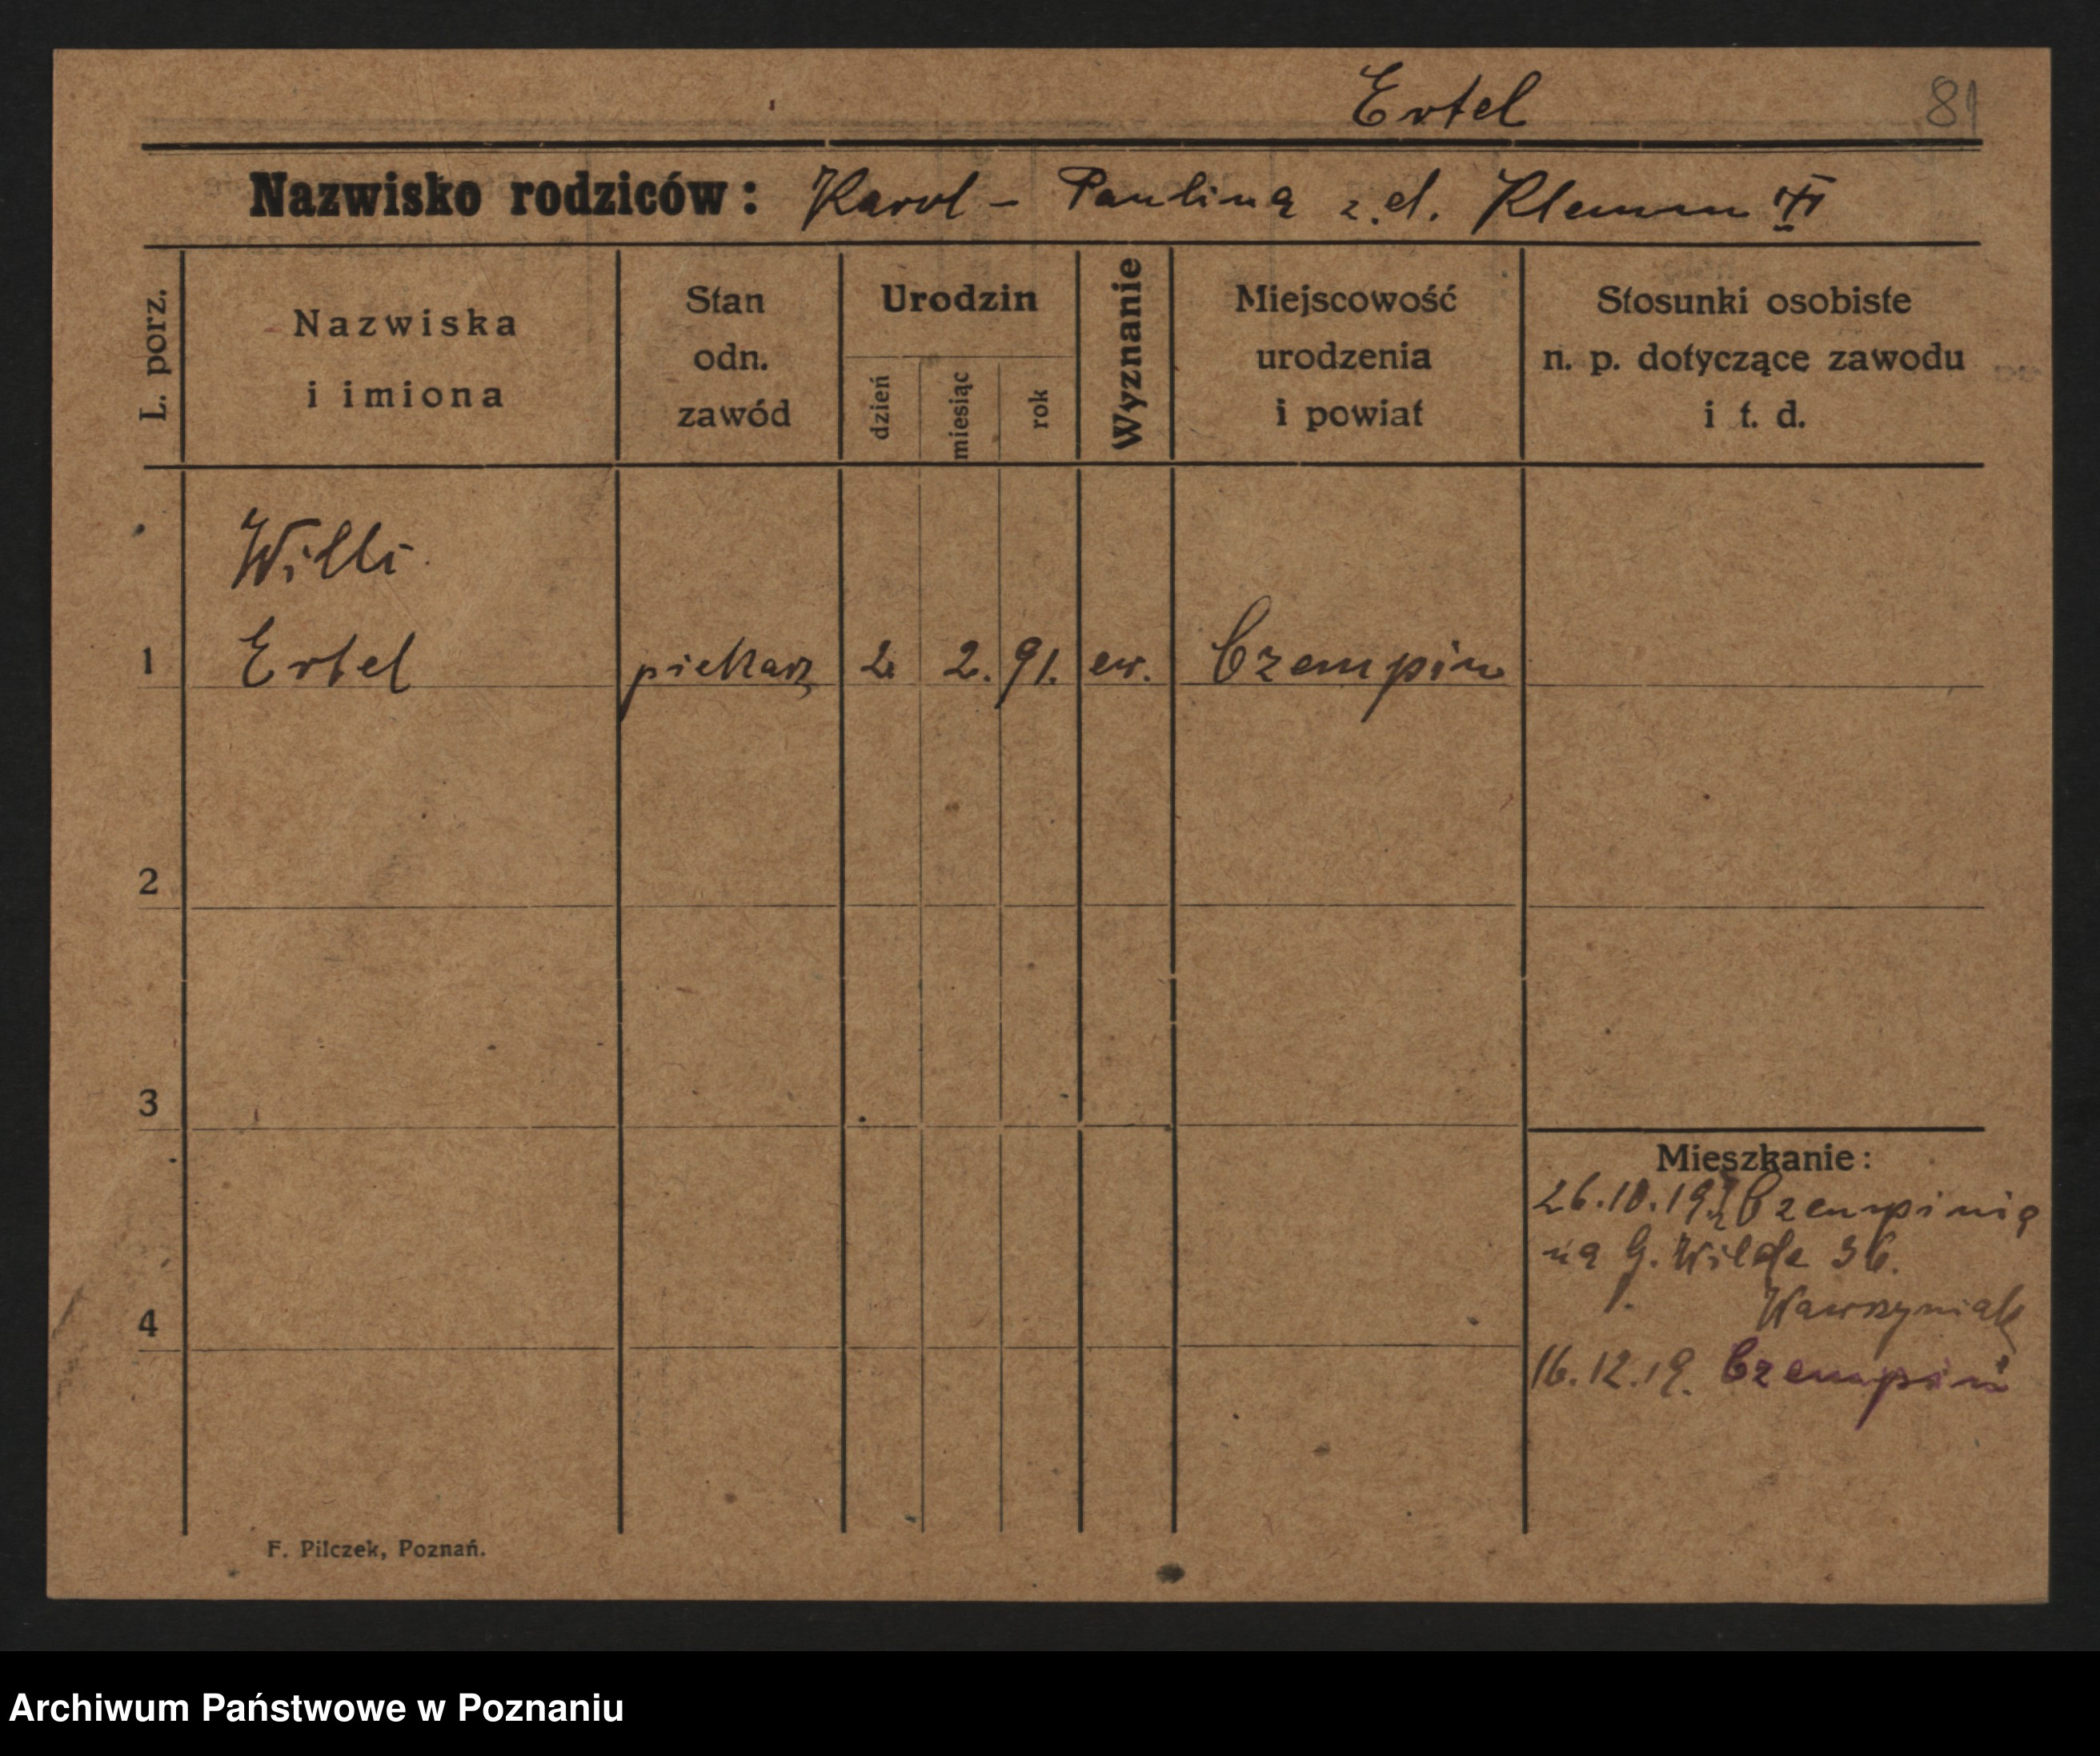 Ertel 81
Nazwisko rodziców: Karol - Paulina z.d. Klemm
L. porz.
Nazwiska
i imiona
Stan
odn.
zawód
Urodzin
dzień
miesiąc
rok
Wyznanie
Miejscowość
urodzenia
i powiat
Stosunki osobiste
n. p. dotyczące zawodu
i t. d.
Willi
1 Ertel piekarz 2. 2. 91. ew. Czempin
2
3
4
Mieszkanie:
26.10.19. z Czempinia
na G. Wilde 36.
Wawrzyniak
16.12.19. Czempiń
F. Pilczek, Poznań.
Archiwum Państwowe w Poznaniu